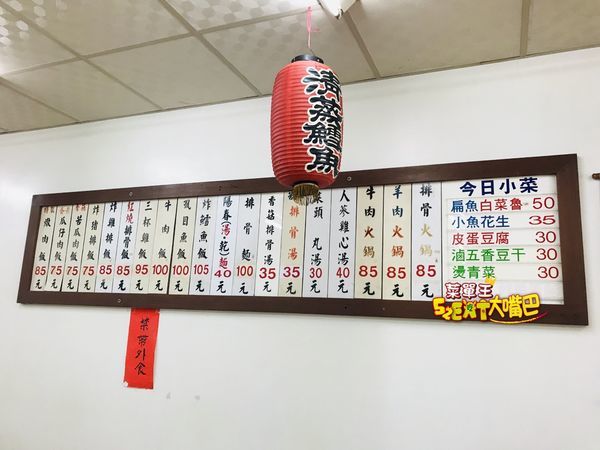 清蒸鱈魚
肉飯 85元
瓜仔肉飯 75元
苦瓜肉飯 75元
肉飯 75元
炸豬排飯 85元
炸雞排飯 85元
紅燒排骨飯 85元
三杯雞飯 95元
牛肉飯 100元
虱目魚飯 100元
炸鱈魚飯 105元
陽春(湯、乾)麵 40元
排骨麵 100元
香菇排骨湯 35元
排骨湯 35元
菜頭丸湯 30元
人蔘雞心湯 40元
牛肉火鍋 85元
羊肉火鍋 85元
排骨火鍋 85元
今日小菜
扁魚白菜魯 50
小魚花生 35
皮蛋豆腐 30
滷五香豆干 30
燙青菜 30
禁帶外食
菜單王
52EXT大嘴巴